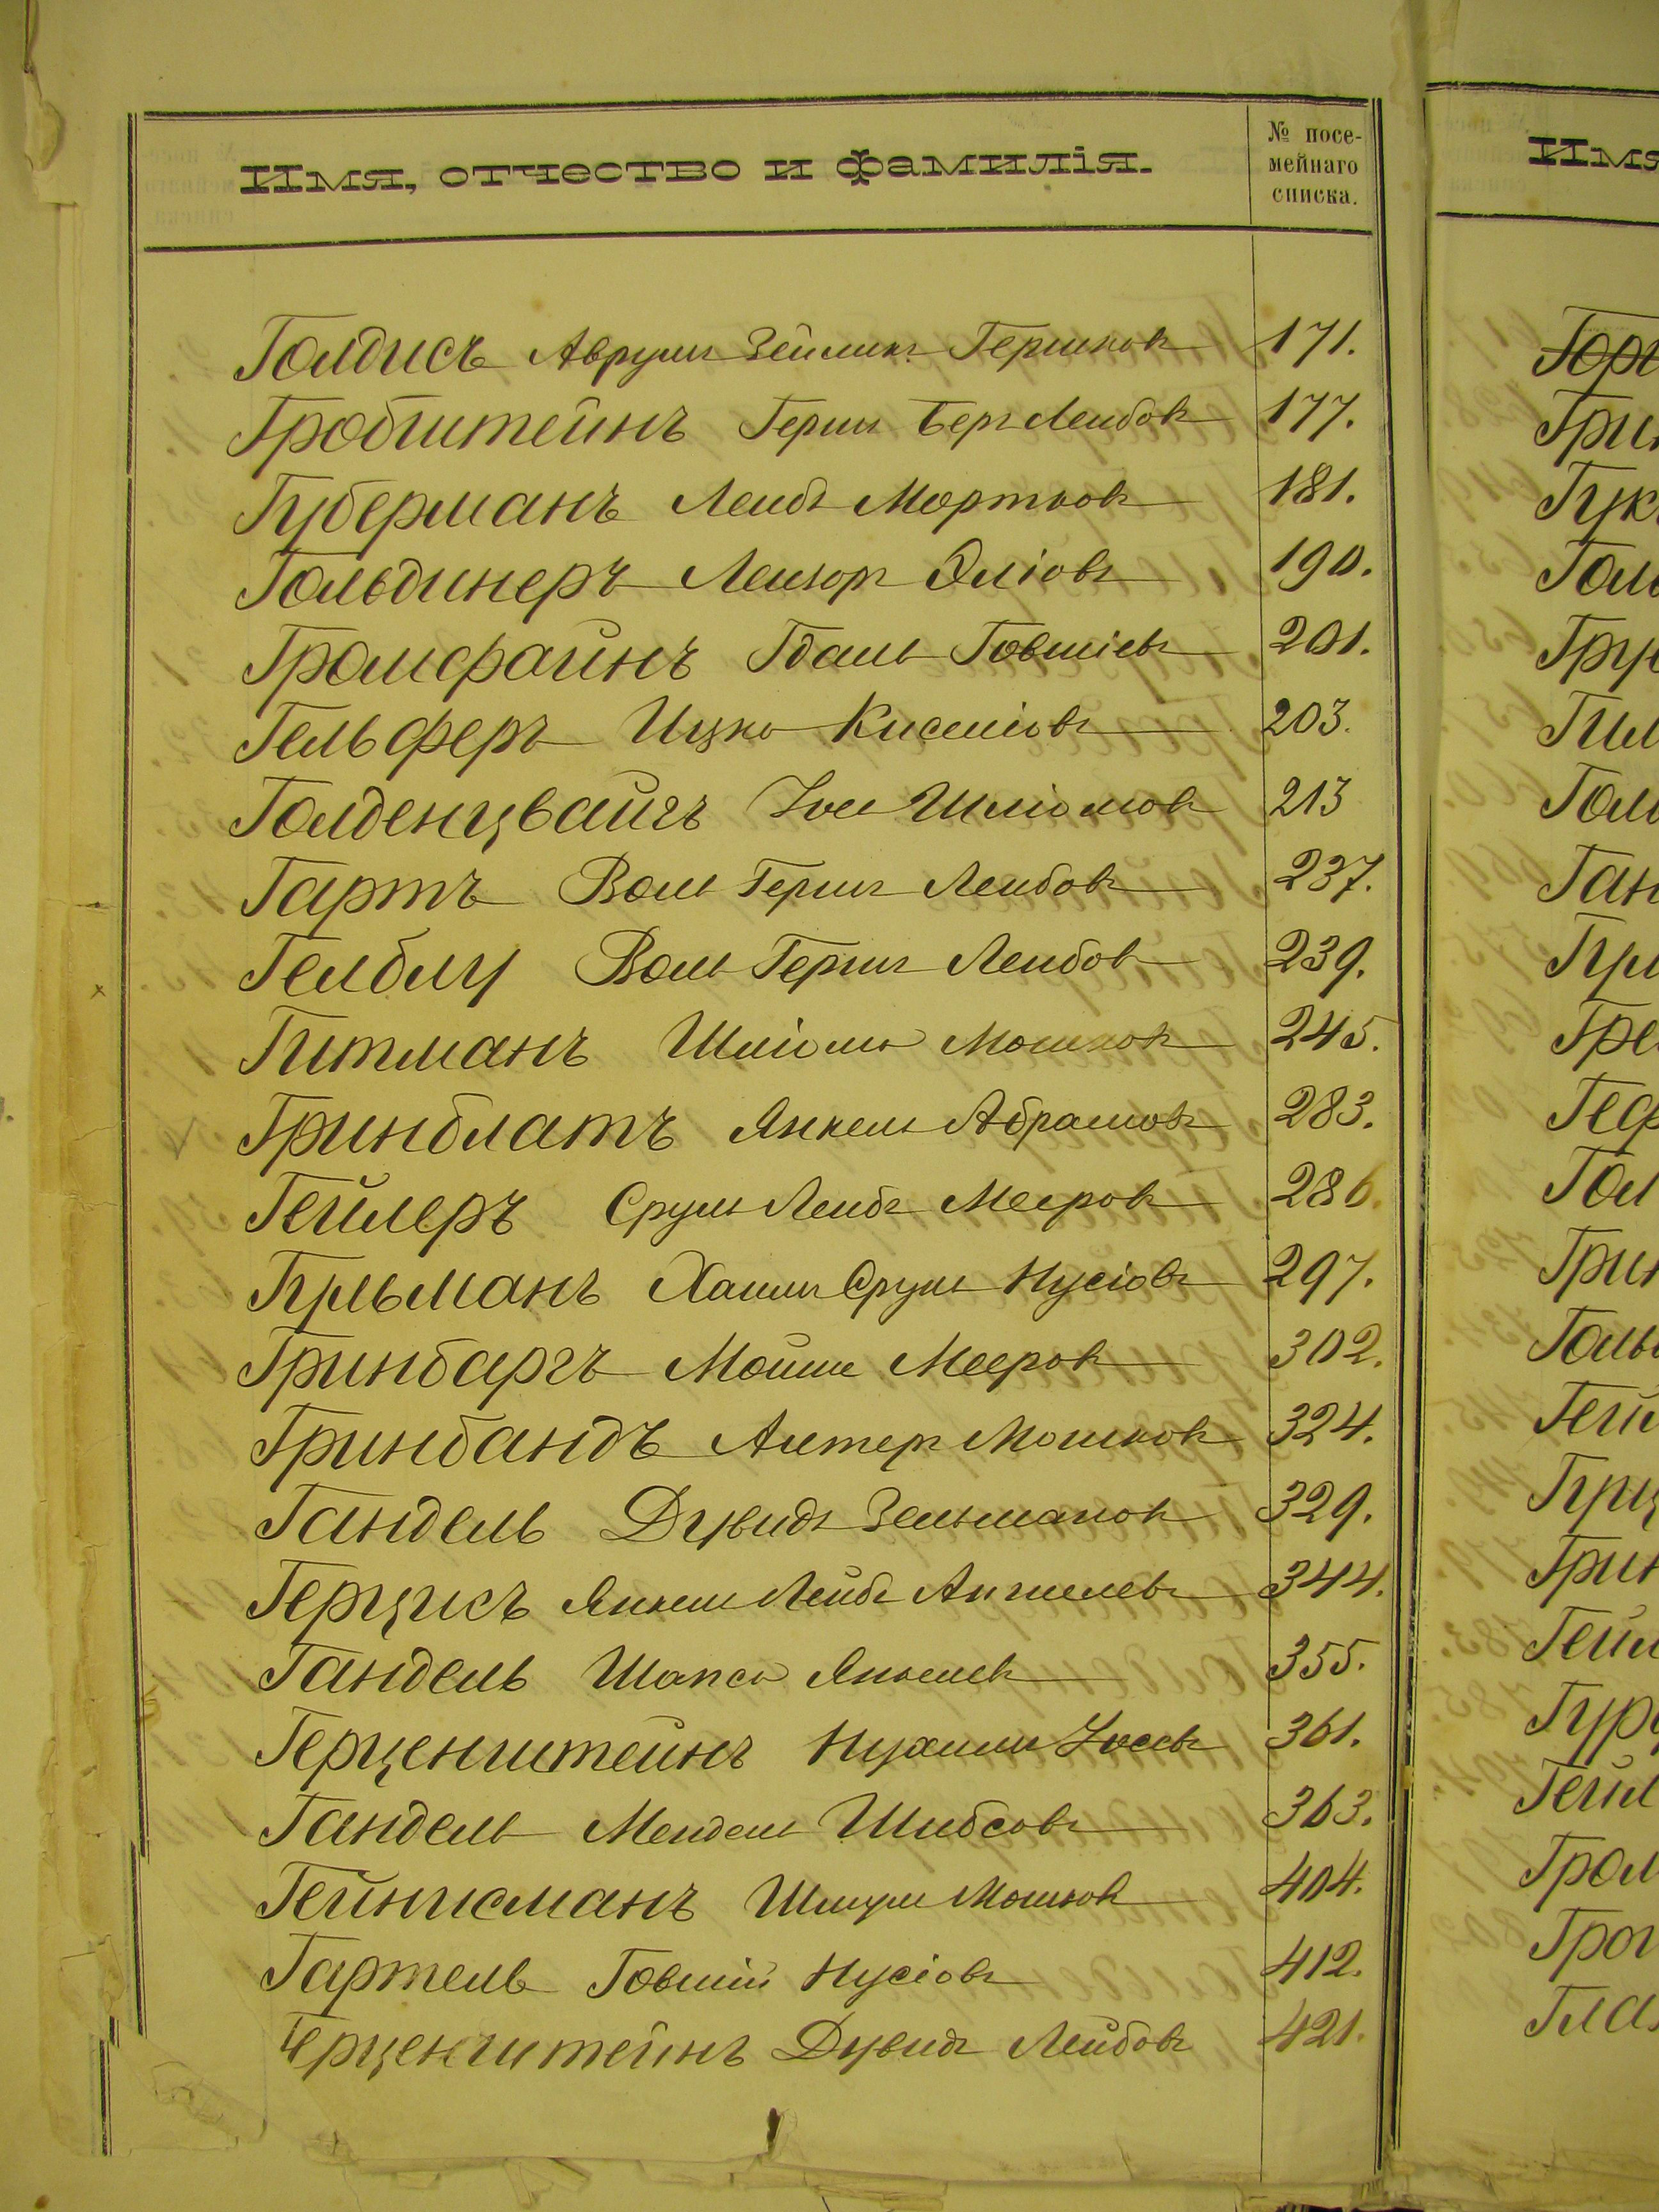 Имя, отчество и фамилія.
№ посе-
мейнаго
списка.
Голдисъ Аврумъ Зейликъ Гершковъ 171.
Гробштейнъ Гершъ Беръ Лейбовъ 177.
Губерманъ Лейбъ Мортковъ 181.
Гольдинеръ Лейзоръ Эліовъ 190.
Громфайнъ Гдаль Говшіевъ 201.
Гельферъ Ицко Кисиліовъ 203.
Голденцвайгъ Іосе Шліомовъ 213
Гартъ Воль Гершъ Лейбовъ 237.
Гелблу Воль Гершъ Лейбовъ 239.
Гитманъ Шлиома Мошковъ 245.
Гринблатъ Янкель Абрамовъ 283.
Гейлеръ Сруль Лейбъ Мееровъ 286.
Гульманъ Хаимъ Сруль Нусіовъ 297.
Гринбаргъ Мойше Мееровъ 302.
Гринбандъ Алтеръ Мошковъ 324.
Гандель Дувидъ Зельмановъ 329.
Герцисъ Янкель Лейбъ Аншелевъ 344.
Гандель Шапса Янкелевъ 355.
Герценштейнъ Нухимъ Іосевъ 361.
Гандель Мендель Шибсовъ 363.
Гейнисманъ Шмуль Мошковъ 404.
Гартель Говшій Нусіовъ 412.
Герценштейнъ Дувидъ Лейбовъ 421.
Имя
Грин
Гук
Голь
Гру
Гил
Гол
Ган
Гре
Геф
Гол
Грин
Голь
Гей
Гри
Гейл
Гур
Гейл
Гром